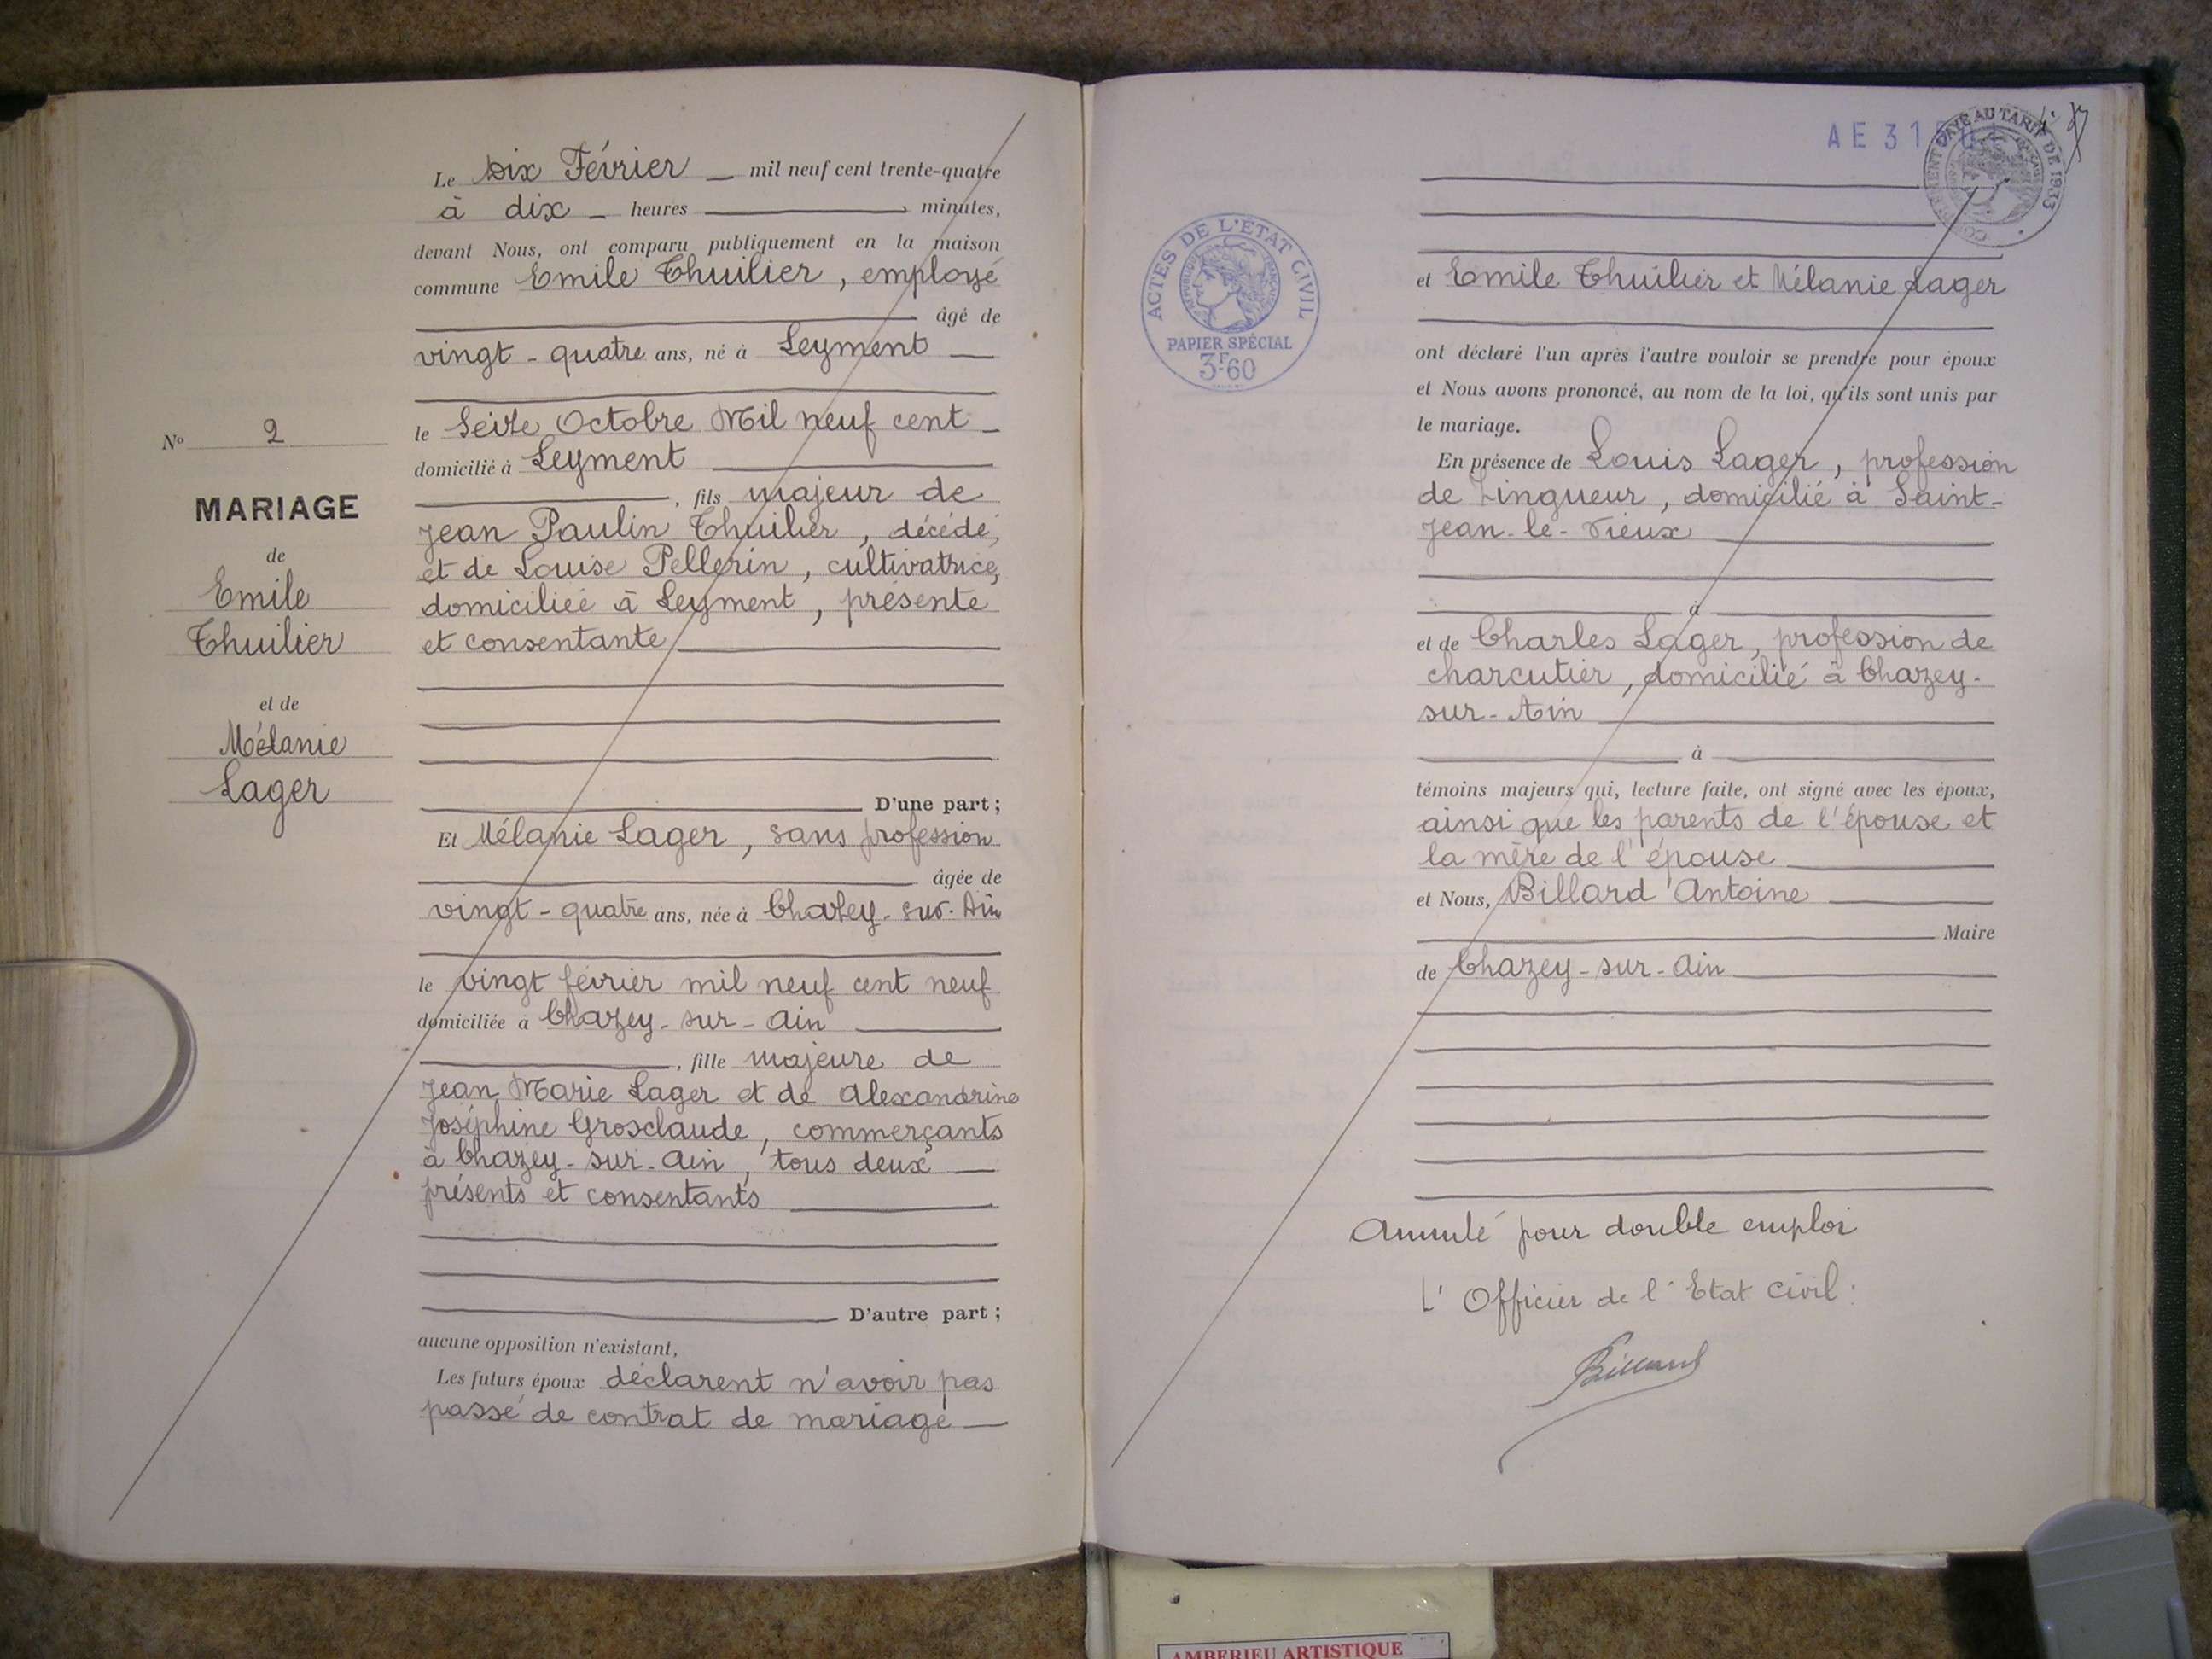 Le Dix Février mil neuf cent trente-quatre
à dix heures minutes,
devant Nous, ont comparu publiquement en la maison
commune Emile Thuilier, employé
âgé de
vingt-quatre ans, né à Leyment
le Seize Octobre Mil neuf cent
domicilié à Leyment
, fils majeur de
Jean Paulin Thuilier, décédé,
et de Louise Pellerin, cultivatrice,
domiciliée à Leyment, présente
et consentante
D'une part;
Et Mélanie Lager, sans profession
âgée de
vingt-quatre ans, née à Chazey-sur-Ain
le vingt février mil neuf cent neuf
domiciliée à Chazey-sur-Ain
, fille majeure de
Jean Marie Lager et de Alexandrine
Joséphine Grosclaude, commerçants
à Chazey-sur-Ain, tous deux
présents et consentants
D'autre part;
aucune opposition n'existant,
Les futurs époux déclarent n'avoir pas
passé de contrat de mariage
No 2
MARIAGE
de
Emile
Thuilier
et de
Mélanie
Lager
AE 31
PAYÉ AU TARIF DE 1933
ACTES DE L'ETAT CIVIL
RÉPUBLIQUE FRANÇAISE
PAPIER SPÉCIAL
3F60
et Emile Thuilier et Mélanie Lager
ont déclaré l'un après l'autre vouloir se prendre pour époux
et Nous avons prononcé, au nom de la loi, qu'ils sont unis par
le mariage.
En présence de Louis Lager, profession
de Zingueur, domicilié à Saint-
Jean-le-Vieux
à
et de Charles Lager, profession de
charcutier, domicilié à Chazey-
sur-Ain
à
témoins majeurs qui, lecture faite, ont signé avec les époux,
ainsi que les parents de l'épouse et
la mère de l'épouse
et Nous, Billard Antoine
Maire
de Chazey-sur-Ain
Annulé pour double emploi
L'Officier de l'Etat Civil:
Billard
AMBERIEU ARTISTIQUE